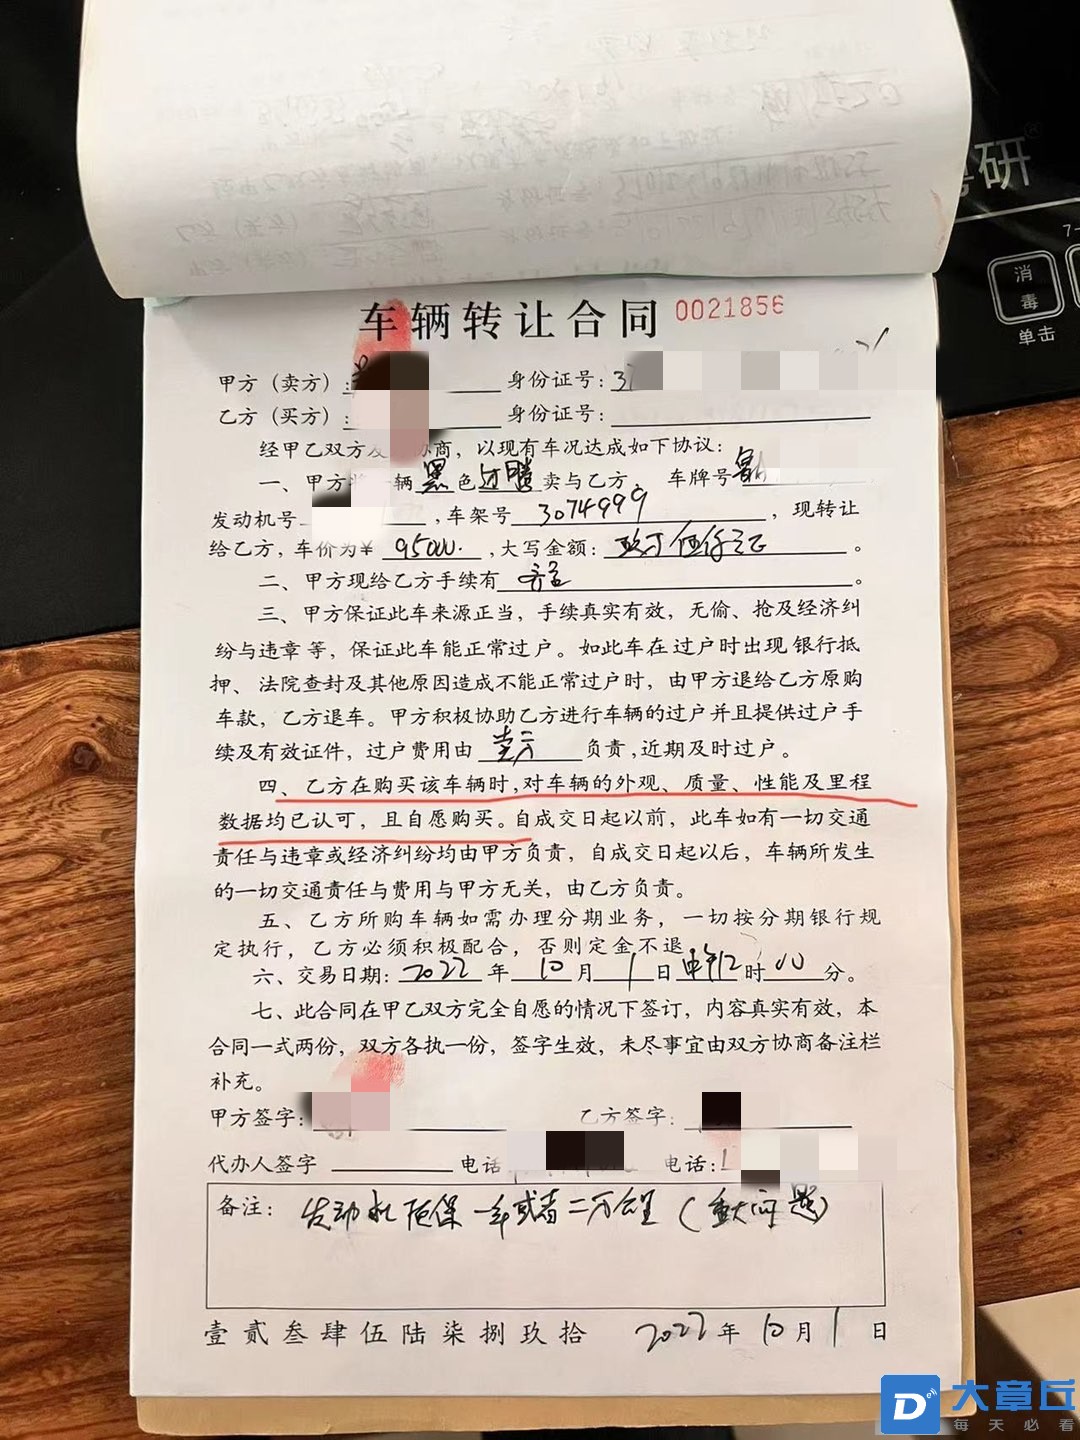 研®
7-
消
毒
单击
车辆转让合同 0021856
甲方（卖方）： 身份证号：37
乙方（买方）： 身份证号：
经甲乙双方 协商，以现有车况达成如下协议：
一、甲方 辆黑色迈腾卖与乙方， 车牌号鲁A
发动机号 ，车架号 3074999 ，现转让
给乙方，车价为¥ 95000. ，大写金额：玖万伍仟元正。
二、甲方现给乙方手续有 齐全 。
三、甲方保证此车来源正当，手续真实有效，无偷、抢及经济纠
纷与违章等，保证此车能正常过户。如此车在过户时出现银行抵
押、法院查封及其他原因造成不能正常过户时，由甲方退给乙方原购
车款，乙方退车。甲方积极协助乙方进行车辆的过户并且提供过户手
续及有效证件，过户费用由 卖方 负责，近期及时过户。
四、乙方在购买该车辆时，对车辆的外观、质量、性能及里程
数据均已认可，且自愿购买。自成交日起以前，此车如有一切交通
责任与违章或经济纠纷均由甲方负责，自成交日起以后，车辆所发生
的一切交通责任与费用与甲方无关，由乙方负责。
五、乙方所购车辆如需办理分期业务，一切按分期银行规
定执行，乙方必须积极配合，否则定金不退
六、交易日期：2022年10月1日中午12时00分。
七、此合同在甲乙双方完全自愿的情况下签订，内容真实有效，本
合同一式两份，双方各执一份，签字生效，未尽事宜由双方协商备注栏
补充。
甲方签字： 乙方签字：
代办人签字 电话 电话：1
备注： 发动机质保一年或者二万公里（重大问题）
壹贰叁肆伍陆柒捌玖拾 2022年10月1日
大章丘
每天必看